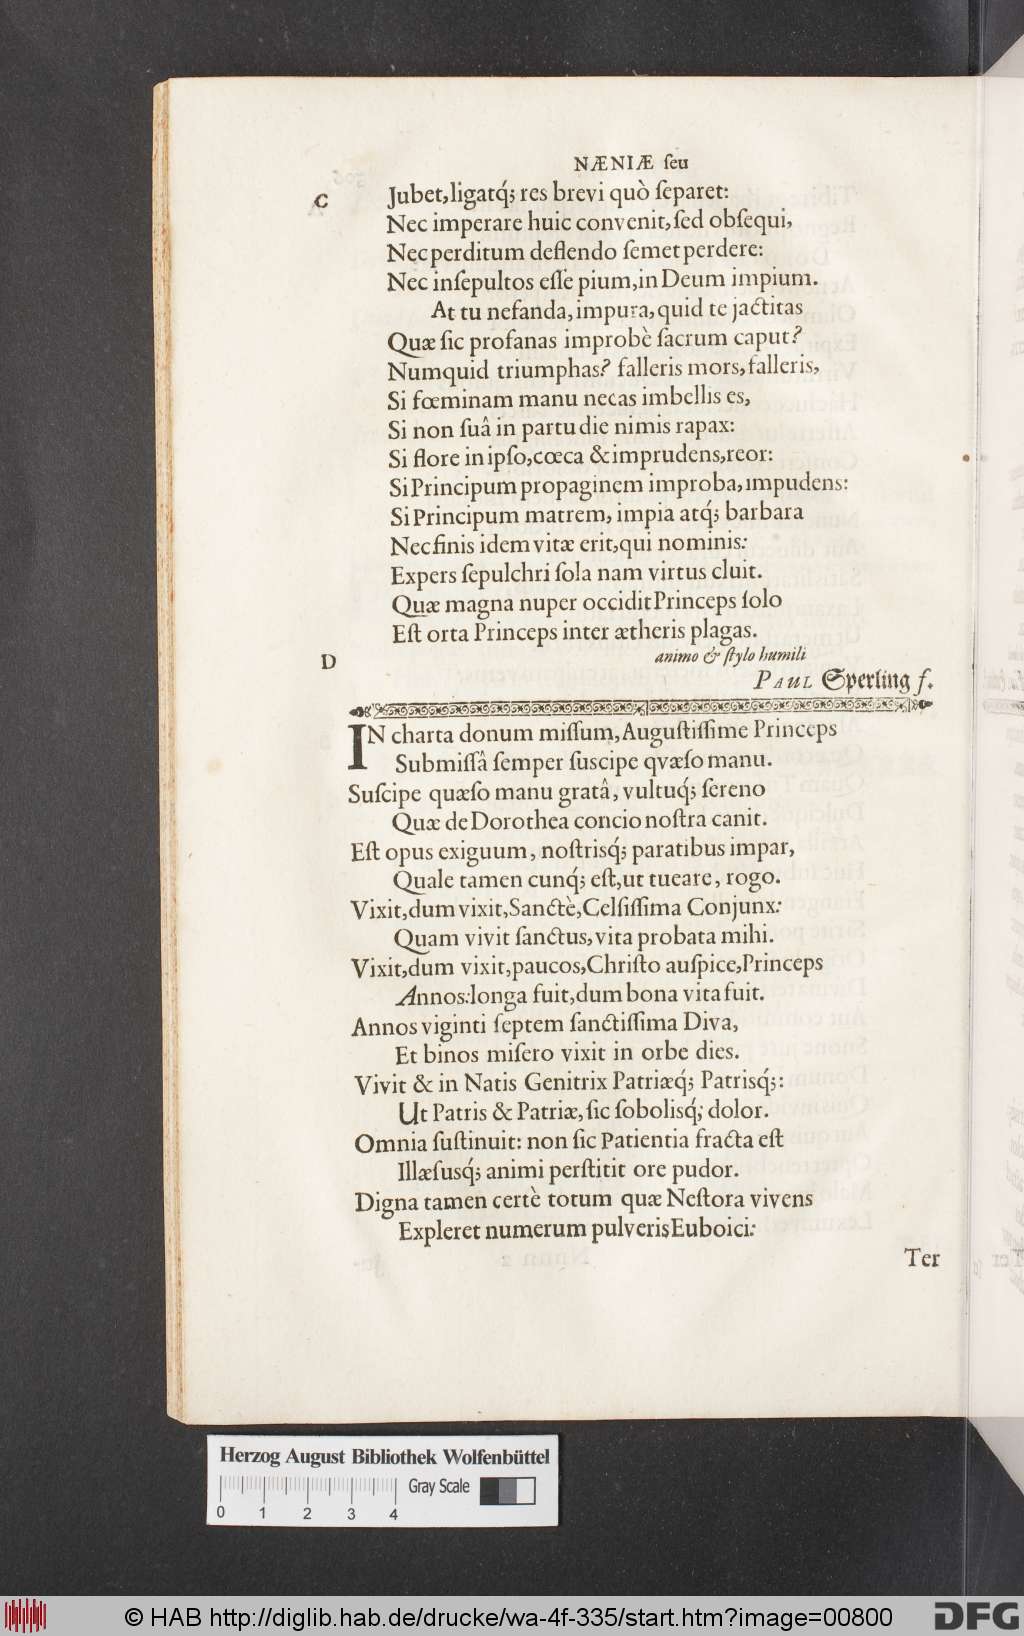 NÆNIÆ ſeu
C
Jubet,ligatq́; res brevi quò ſeparet:
Nec imperare huic convenit,ſed obſequi,
Nec perditum deflendo ſemet perdere:
Nec inſepultos eſſe pium,in Deum impium.
At tu nefanda,impura,quid te jactitas
Quæ ſic profanas improbè ſacrum caput?
Numquid triumphas? falleris mors,falleris,
Si fœminam manu necas imbellis es,
Si non ſuâ in partu die nimis rapax:
Si flore in ipſo,cœca & imprudens,reor:
Si Principum propaginem improba,impudens:
Si Principum matrem, impia atq́; barbara
Nec finis idem vitæ erit,qui nominis:
Expers ſepulchri ſola nam virtus cluit.
Quæ magna nuper occidit Princeps ſolo
Eſt orta Princeps inter ætheris plagas.
D
animo & ſtylo humili
PAUL Sperling f.
IN charta donum miſſum,Auguſtiſſime Princeps
Submiſſâ ſemper ſuscipe qvæſo manu.
Suſcipe quæſo manu gratâ, vultuq́; ſereno
Quæ de Dorothea concio noſtra canit.
Eſt opus exiguum, noſtrisq́; paratibus impar,
Quale tamen cunq́; eſt,ut tueare, rogo.
Vixit,dum vixit,Sanctè,Celſiſſima Conjunx:
Quam vivit ſanctus,vita probata mihi.
Vixit,dum vixit,paucos,Chriſto auſpice,Princeps
Annos:longa fuit,dum bona vita fuit.
Annos viginti ſeptem ſanctiſſima Diva,
Et binos miſero vixit in orbe dies.
Vivit & in Natis Genitrix Patriæq́; Patrisq́;:
Ut Patris & Patriæ, ſic ſobolisq́; dolor.
Omnia ſuſtinuit: non ſic Patientia fracta eſt
Illæſusq́; animi perſtitit ore pudor.
Digna tamen certè totum quæ Neſtora vivens
Expleret numerum pulveris Euboici:
Ter
Herzog August Bibliothek Wolfenbüttel
Gray Scale
0 1 2 3 4
© HAB http://diglib.hab.de/drucke/wa-4f-335/start.htm?image=00800
DFG